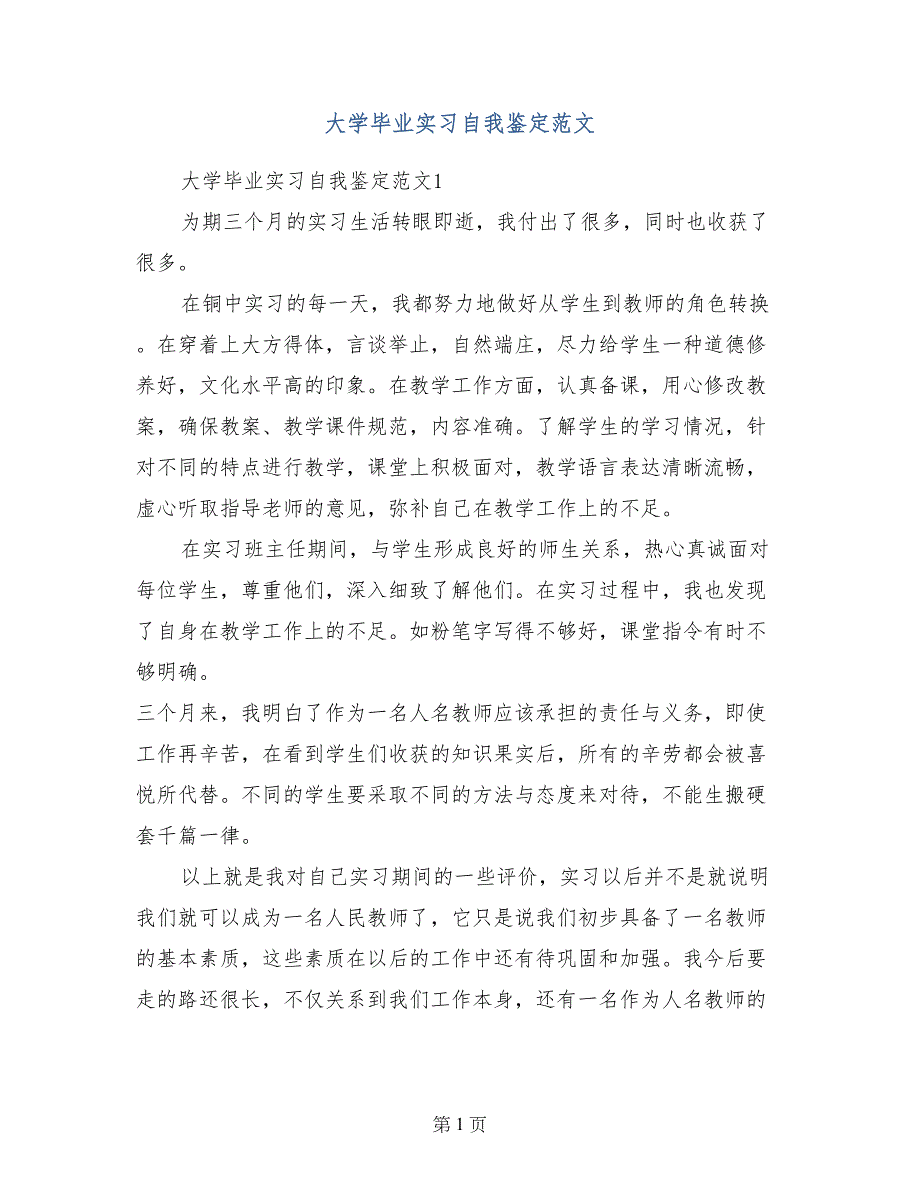 大学毕业实习自我鉴定范文
大学毕业实习自我鉴定范文1
为期三个月的实习生活转眼即逝，我付出了很多，同时也收获了
很多。
在铜中实习的每一天，我都努力地做好从学生到教师的角色转换
。在穿着上大方得体，言谈举止，自然端庄，尽力给学生一种道德修
养好，文化水平高的印象。在教学工作方面，认真备课，用心修改教
案，确保教案、教学课件规范，内容准确。了解学生的学习情况，针
对不同的特点进行教学，课堂上积极面对，教学语言表达清晰流畅，
虚心听取指导老师的意见，弥补自己在教学工作上的不足。
在实习班主任期间，与学生形成良好的师生关系，热心真诚面对
每位学生，尊重他们，深入细致了解他们。在实习过程中，我也发现
了自身在教学工作上的不足。如粉笔字写得不够好，课堂指令有时不
够明确。
三个月来，我明白了作为一名人名教师应该承担的责任与义务，即使
工作再辛苦，在看到学生们收获的知识果实后，所有的辛劳都会被喜
悦所代替。不同的学生要采取不同的方法与态度来对待，不能生搬硬
套千篇一律。
以上就是我对自己实习期间的一些评价，实习以后并不是就说明
我们就可以成为一名人民教师了，它只是说我们初步具备了一名教师
的基本素质，这些素质在以后的工作中还有待巩固和加强。我今后要
走的路还很长，不仅关系到我们工作本身，还有一名作为人名教师的
第 1 页